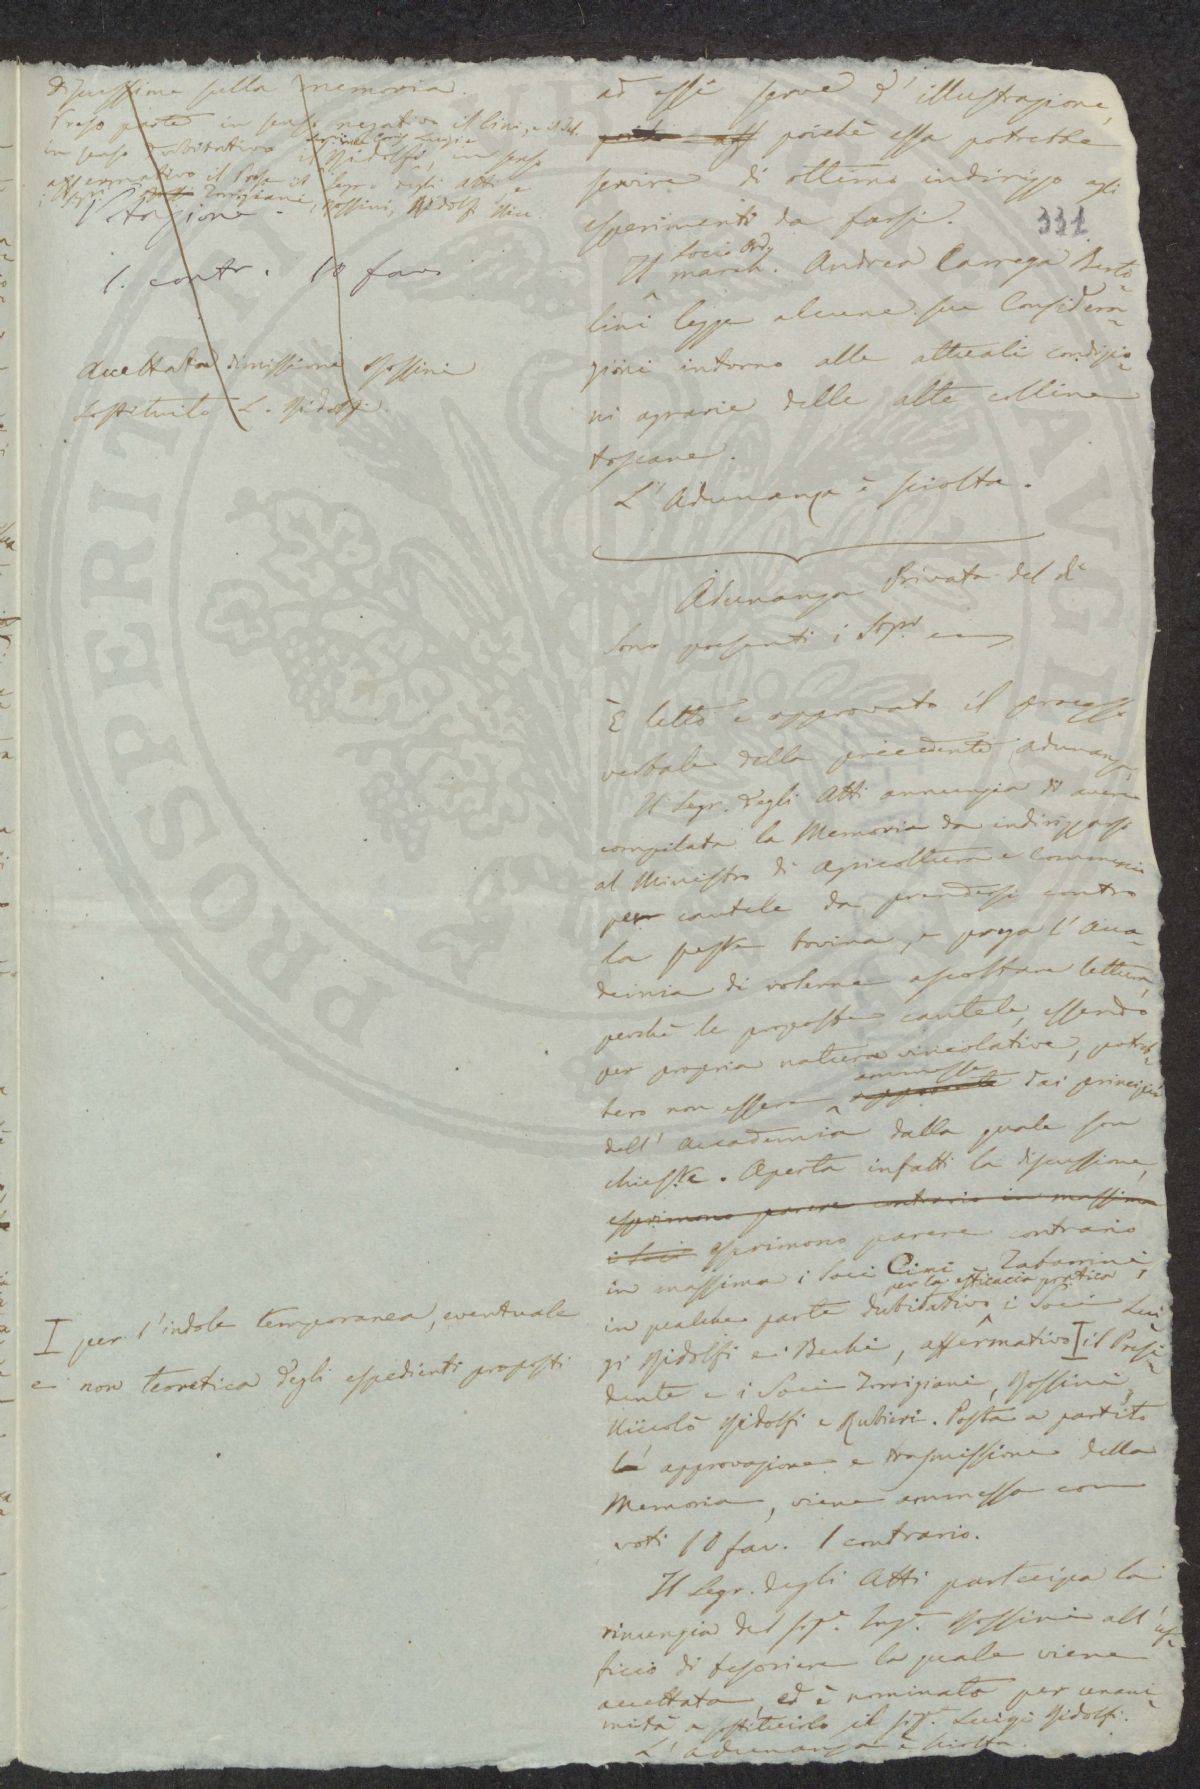 Discussione sulla memoria.
Preso parte in senso negativo il Cini, e il Seg.
in senso dubitativo il Ridolfi, in senso
affermativo il Pres. il Segr. degli Atti, e
i Sigri Torrigiani, Rossini, Ridolfi Nicc.
1. contr. 10 fav.
Accettata dimissione Rossini
Sostituito L. Ridolfi
I per l'indole temporanea, eventuale
e non teoretica degli espedienti proposti
ad essi serve d'illustrazione,
poichè essa potrebbe
servire di ottimo indirizzo agli
esperimenti da farsi.
331
Socio Ord.
Il march. Andrea Carrega Berto-
lini legge alcune sue Considera-
zioni intorno alle attuali condizio-
ni agrarie delle alte colline
toscane.
L'Adunanza è sciolta.
Adunanza Privata del dì
Sono presenti i Sigri
È letto e approvato il processo
verbale della precedente adunanza.
Il Segr. degli Atti annunzia di avere
compilata la Memoria da indirizzarsi
al Ministro di Agricoltura e Commercio
per cautele da prendersi contro
la peste bovina, e prega l'Acca-
demia di volerne ascoltare lettura,
perchè le proposte cautele, essendo
per propria natura vincolative, potreb-
ammesse
bero non essere approvate dai principii
dell'Accademia dalla quale son
chieste. Aperta infatti la discussione,
esprimono parere contrario in massima
i Soci esprimono parere contrario
in massima i Soci Cini e Tabarrini,
per la efficacia pratica
in qualche parte dubitativo i Soci Lui-
gi Ridolfi e Bechi, affermativo I il Presi-
dente e i Soci Torrigiani, Rossini,
Niccolò Ridolfi e Rubieri. Posta a partito
la approvazione e trasmissione della
Memoria, viene ammessa con
voti 10 fav. 1 contrario.
Il Segr. degli Atti partecipa la
rinunzia del Sigr. Ingr. Rossini all'uf-
ficio di tesoriere la quale viene
accettata, ed è nominato per unani-
mità a sostituirlo il Sigr. Luigi Ridolfi.
L'adunanza è sciolta.
PROSPERITATI PUBLICAE AUGENDAE